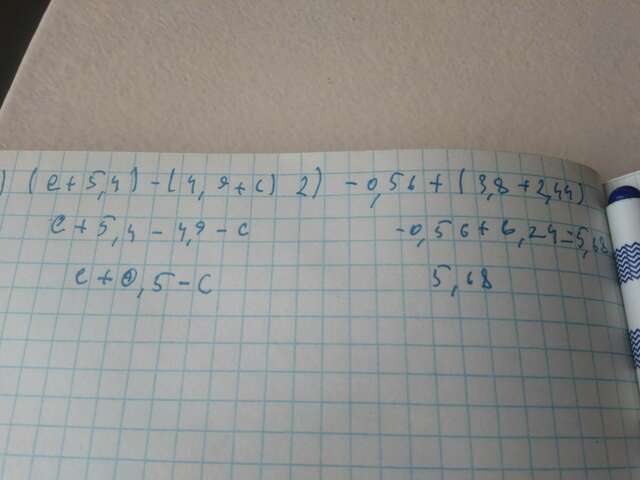 ) (c+5,4)-(4,9+c) 2) -0,56+(3,8+2,44)
c+5,4-4,9-c -0,56+6,24=5,68
c+0,5-c 5,68